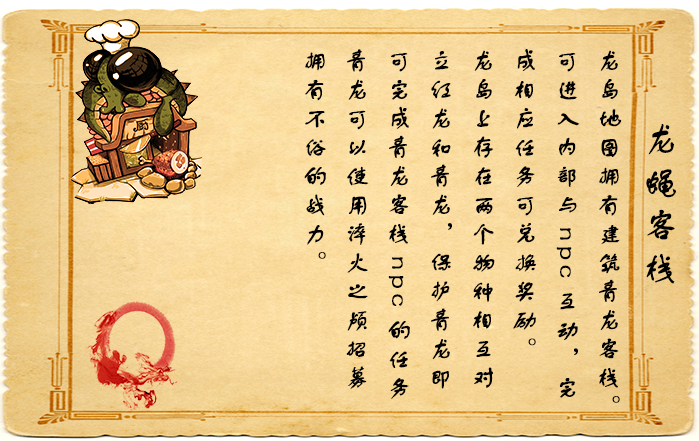 龙蝇客栈
龙岛地图拥有建筑青龙客栈。
可进入内部与npc互动，完
成相应任务可兑换奖励。
龙岛上存在两个物种相互对
立红龙和青龙，保护青龙即
可完成青龙客栈npc的任务
青龙可以使用淬火之颅招募
拥有不俗的战力。